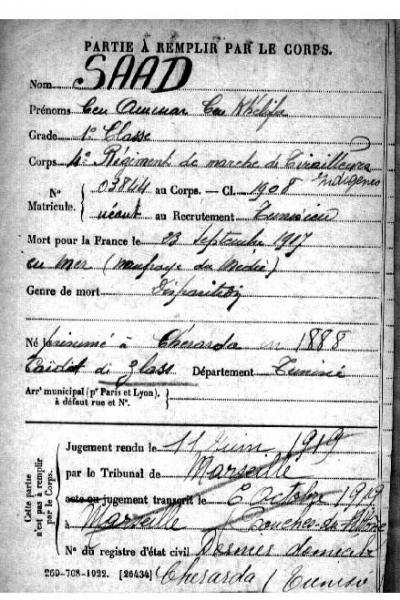 PARTIE À REMPLIR PAR LE CORPS.
Nom SAAD
Prénoms Ben Ammar Ben Khelifa
Grade 1e Classe
Corps 4e Régiment de marche de Tirailleurs
indigènes
N° Matricule. { 03844 au Corps. — Cl. 1908
néant au Recrutement Tunisien
Mort pour la France le 23 Septembre 1917
en mer (naufrage du Médie)
Genre de mort Disparition
Né présumé à Cherarda en 1888
Caïdat de Zlass Département Tunisie
Arrt municipal (pr Paris et Lyon),
à défaut rue et N°.
Cette partie n'est pas à remplir par le Corps.
Jugement rendu le 11 Juin 1919
par le Tribunal de Marseille
acte ou jugement transcrit le 6 octobre 1919
à Marseille Bouches-du-Rhône
N° du registre d'état civil Dernier domicile
269-708-1922. [26434] Cherarda / Tunisie